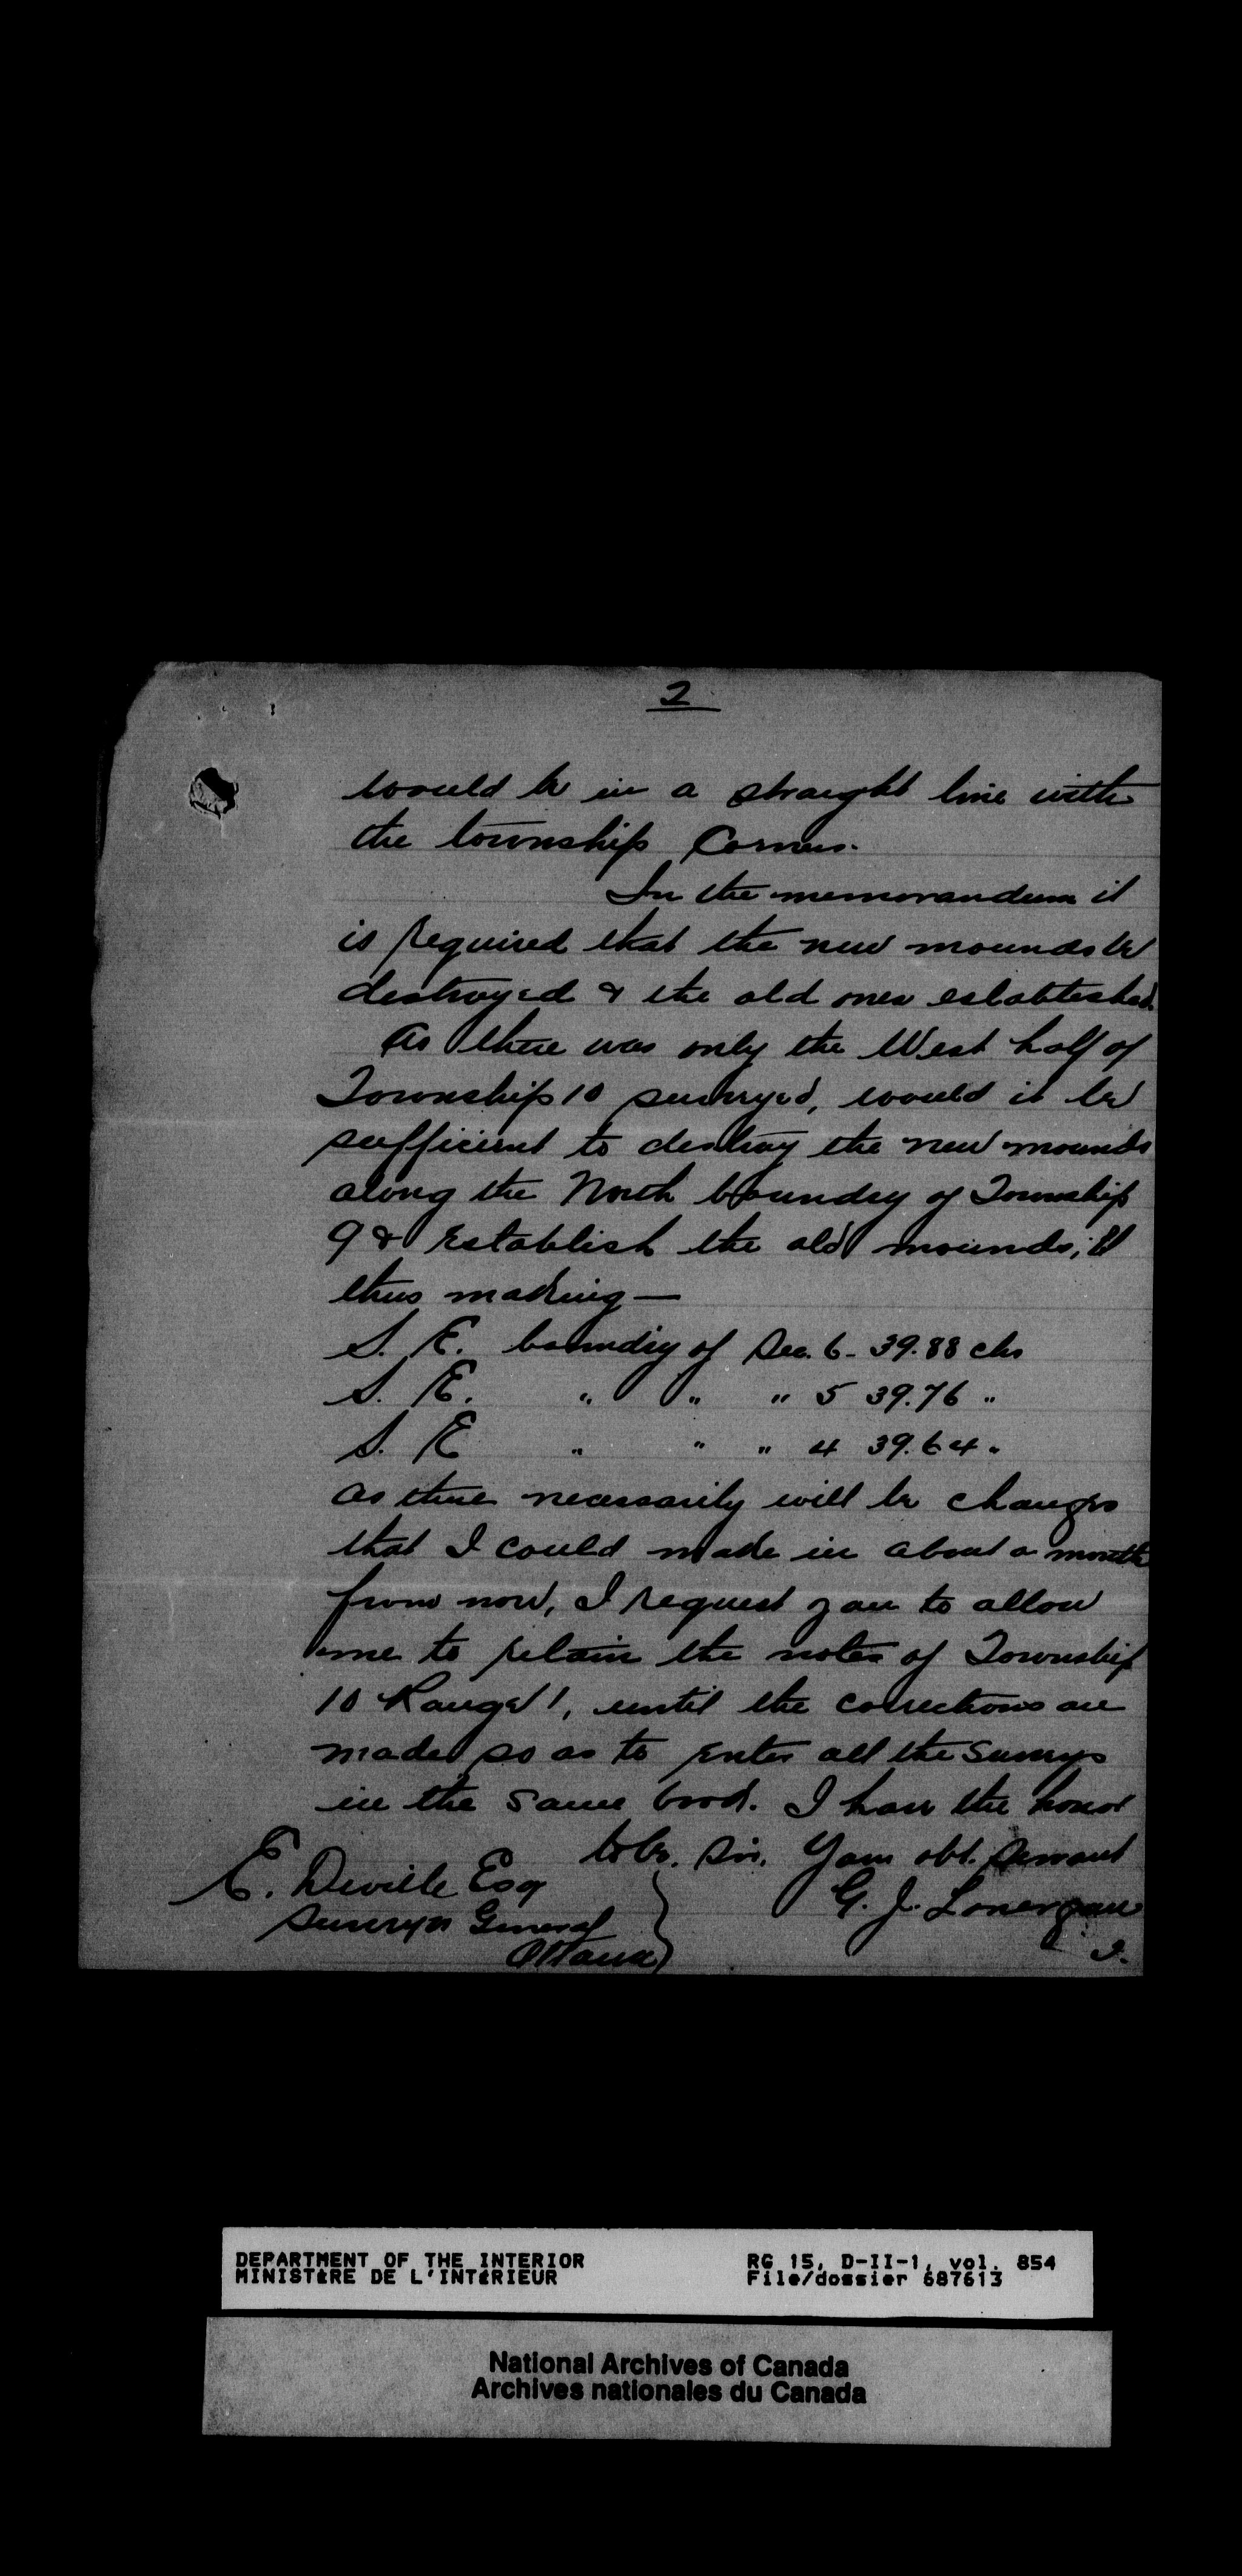 2
would be in a straight line with
the township Corners.
In the memorandum it
is required that the new mounds be
destroyed & the old ones established.
As there was only the West half of
Township 10 surveyed, would it be
sufficient to destroy the new mounds
along the North boundry of Township
9 & Establish the old mounds,
thus making —
S. E. boundry of Sec. 6 - 39.88 chs
S. E. " " " 5 39.76 "
S. E " " " 4 39.64 "
as there necessarily will be changes
that I could made in about a month
from now, I request you to allow
me to retain the notes of Township
10 Range 1, until the corrections are
made so as to enter all the surveys
in the same book. I have the honor
to be, Sir, Your obt. servant
E. Deville Esq
G. J. Lonergan
Surveyor General
Ottawa
DEPARTMENT OF THE INTERIOR
MINISTÈRE DE L'INTÉRIEUR
RG 15, D-II-1, vol. 854
File/dossier 687613
National Archives of Canada
Archives nationales du Canada